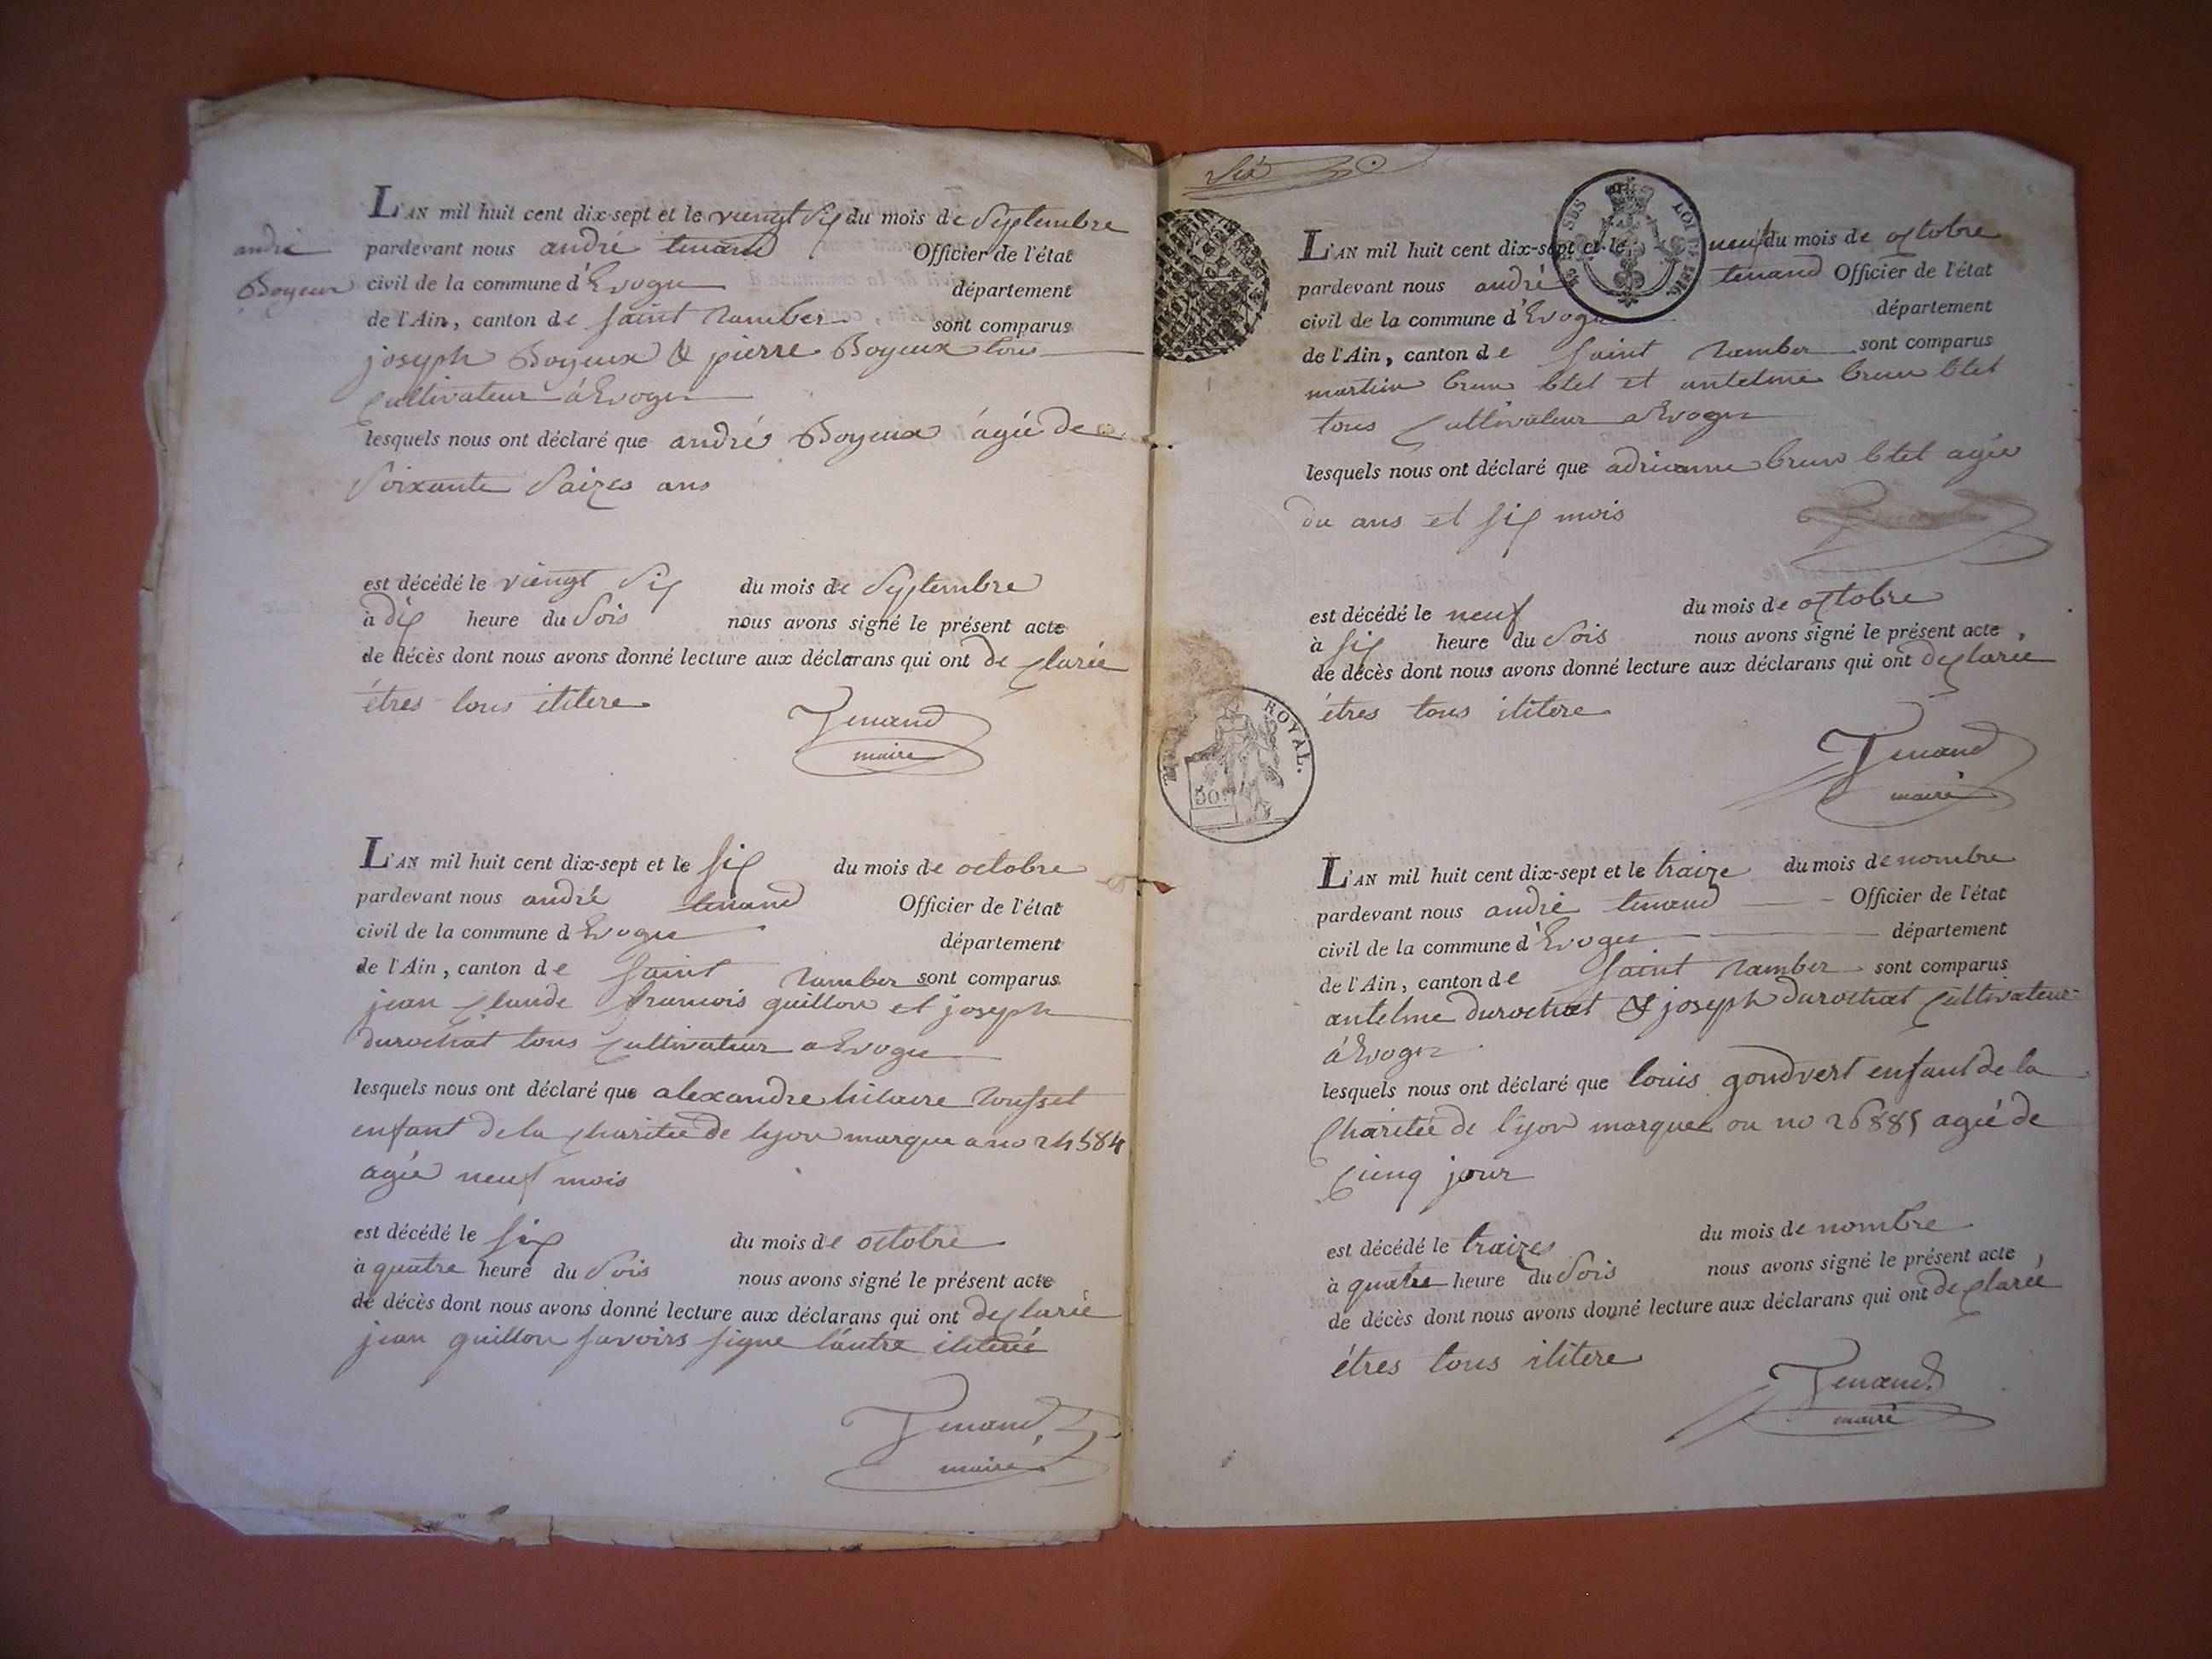 andré
Boyeux
L'AN mil huit cent dix-sept et le viengt six du mois de Septembre
pardevant nous andré tenand Officier de l'état
civil de la commune d'Evoges département
de l'Ain, canton de saint ramber sont comparus
joseph Boyeux & pierre Boyeux tous
cultivateur à Evoges
lesquels nous ont déclaré que andré Boyeux ágié de
Soixante Saizes ans
est décédé le viengt Six du mois de Septembre
à dix heure du Soir nous avons signé le présent acte
de décès dont nous avons donné lecture aux déclarans qui ont de clarée
étres tous ilitere
Tenand
maire
L'AN mil huit cent dix-sept et le six du mois de octobre
pardevant nous andré tenand Officier de l'état
civil de la commune d Evoges département
de l'Ain, canton de saint ramber sont comparus
jean claude francois guillon et joseph
durochat tous cultivateur a Evoges
lesquels nous ont déclaré que alexandre hilaire rousset
enfant de la charitée de lyon marque a no 24584
agée neuf mois
est décédé le six du mois de octobre
à quatre heure du Soir nous avons signé le présent acte
de décès dont nous avons donné lecture aux déclarans qui ont declarée
jean guillon savoirs signe l'autre ilitere
Tenand
maire
L'AN mil huit cent dix-sept et le neuf du mois de octobre
pardevant nous andré tenand Officier de l'état
civil de la commune d'Evoges département
de l'Ain, canton de saint ramber sont comparus
martin brun btet et antelme brun btet
tous cultivateur a Evoges
lesquels nous ont déclaré que adrienne brun btet agée
du ans et six mois
est décédé le neuf du mois de octobre
à six heure du Soir nous avons signé le présent acte,
de décès dont nous avons donné lecture aux déclarans qui ont declaree
étres tous ilitere
ROYAL.
50
LOI DE 1816
Tenand
maire
L'AN mil huit cent dix-sept et le traize du mois de nombre
pardevant nous andré tenand Officier de l'état
civil de la commune d'Evoges département
de l'Ain, canton de saint ramber sont comparus
antelme durochat & joseph durochat cultivateur
á Evoges
lesquels nous ont déclaré que louis gondvert enfant de la
charitée de lyon marquer ou no 26885 agée de
cienq jour
est décédé le traizes du mois de nombre
à quatre heure du Soir nous avons signé le présent acte,
de décès dont nous avons donné lecture aux déclarans qui ont declarée
étres tous ilitere
Tenand
maire